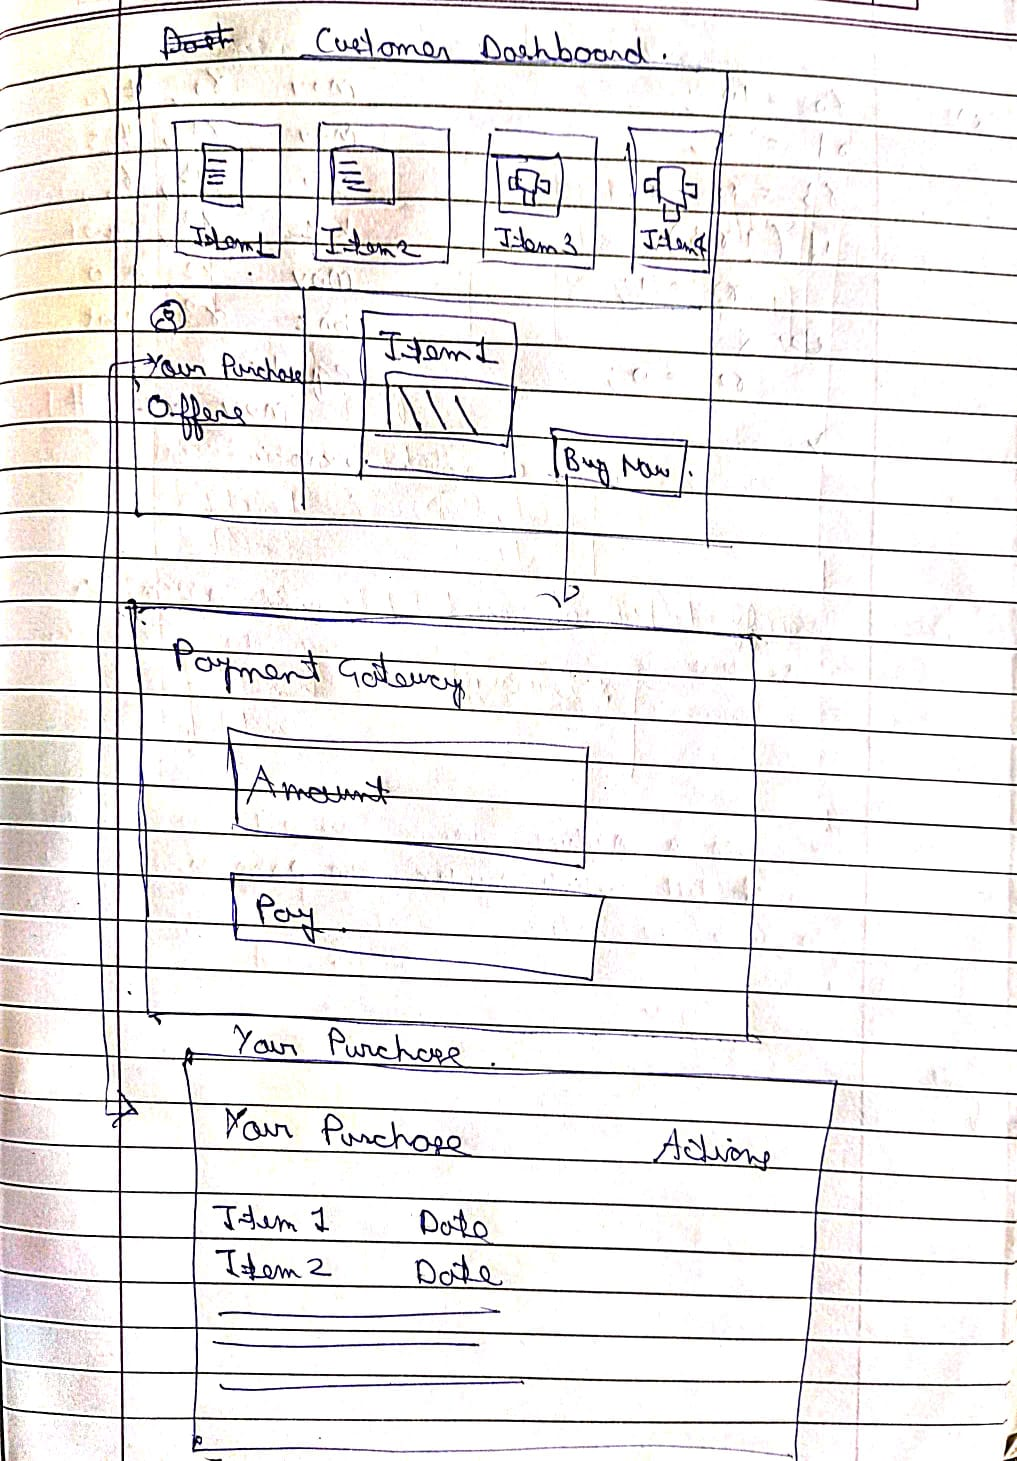 Customer Dashboard.
Item1 Item2 Item3 Item4
Your Purchase
Offers
Item1
Buy Now
Payment Gateway
Amount
Pay
Your Purchase.
Your Purchase Actions
Item 1 Date
Item 2 Date